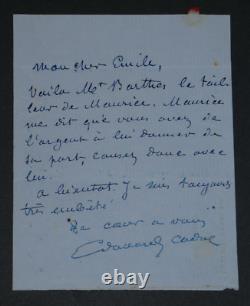 Mon cher Emile,
Voila Mr Barthes le tail-
leur de Maurice. Maurice
me dit que vous avez de
l'argent à lui donner de
sa part, causez donc avec
lui.
a bientot je suis toujours
très embêté
de cœur a vous
Edouard Cadol
© tb1086.com